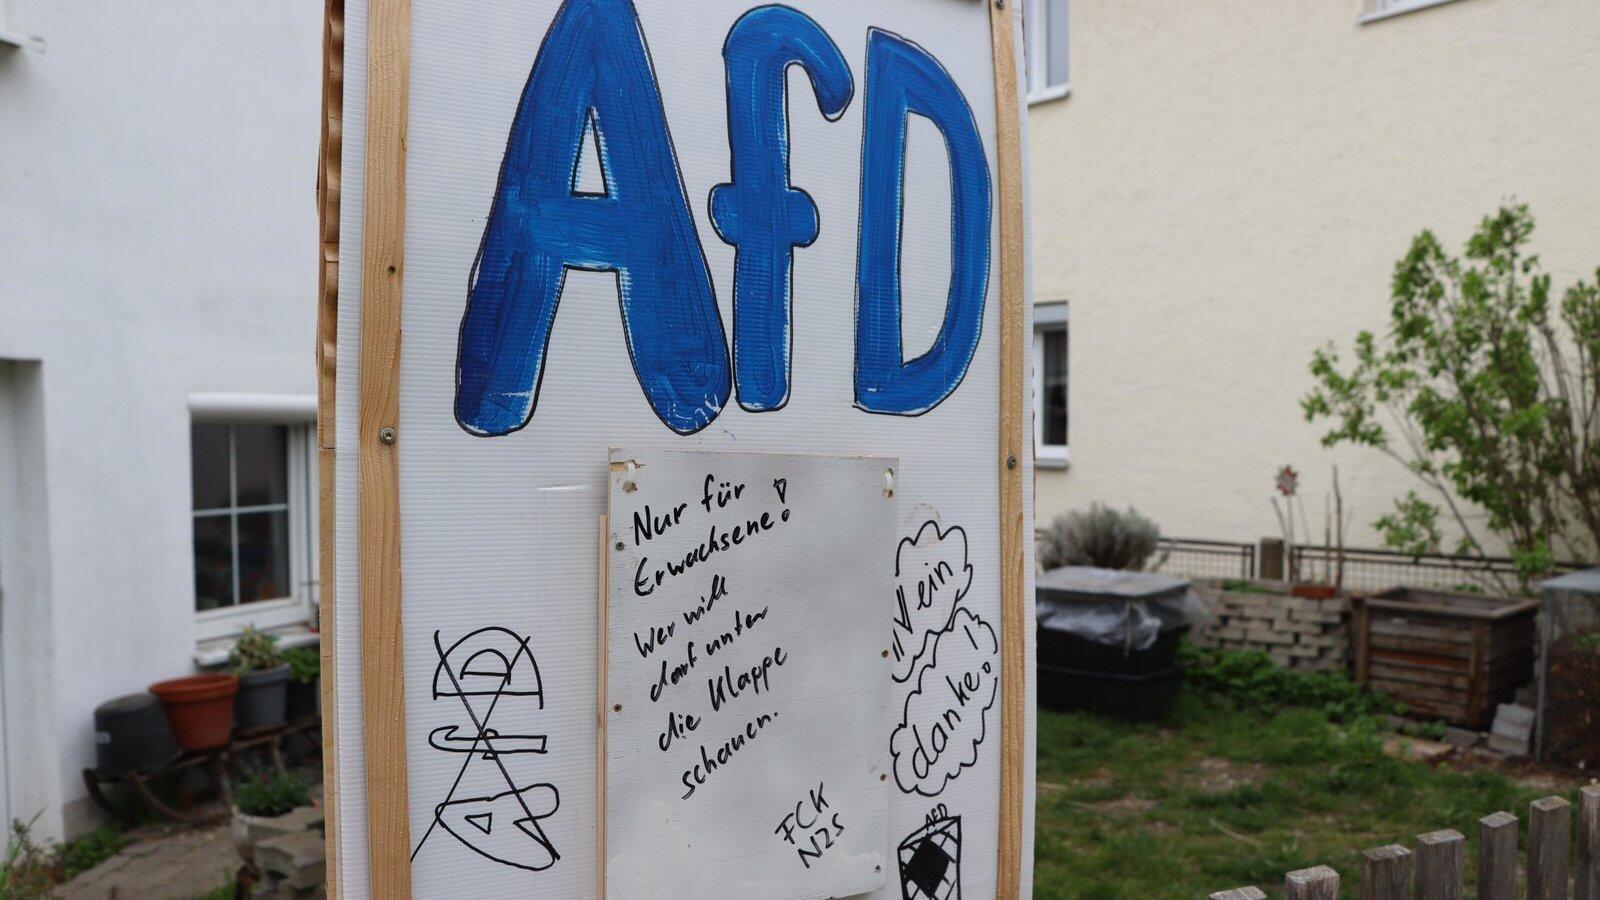 AfD
Nur für
Erwachsene!
Wer will
darf unter
die Klappe
schauen.
FCK
NZS
Nein
danke!
AFD
AfD